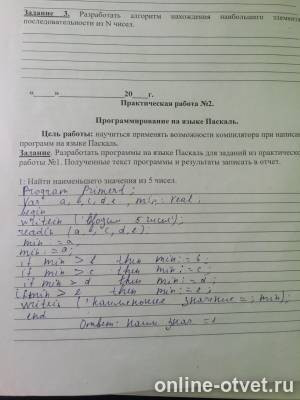 Задание 3. Разработать алгоритм нахождения наибольшего элемента
последовательности из N чисел.
«____»____________20____г.
Практическая работа №2.
Программирование на языке Паскаль.
Цель работы: научиться применять возможности компилятора при написании
программ на языке Паскаль.
Задание. Разработать программы на языке Паскаль для заданий из практической
работы №1. Полученные текст программы и результаты записать в отчет.
1: Найти наименьшего значения из 5 чисел.
Program Primer1;
Var a, b, c, d, e, min: real;
begin
writeln ('Вводим 5 чисел');
readln (a, b, c, d, e);
min := a,
min := a;
if min > b then min := b;
if min > c then min := c;
if min > d then min := d;
if min > e then min := e;
writeln ('наименьшее значение =; min);
end
Ответ: наим знач = 1
online-otvet.ru